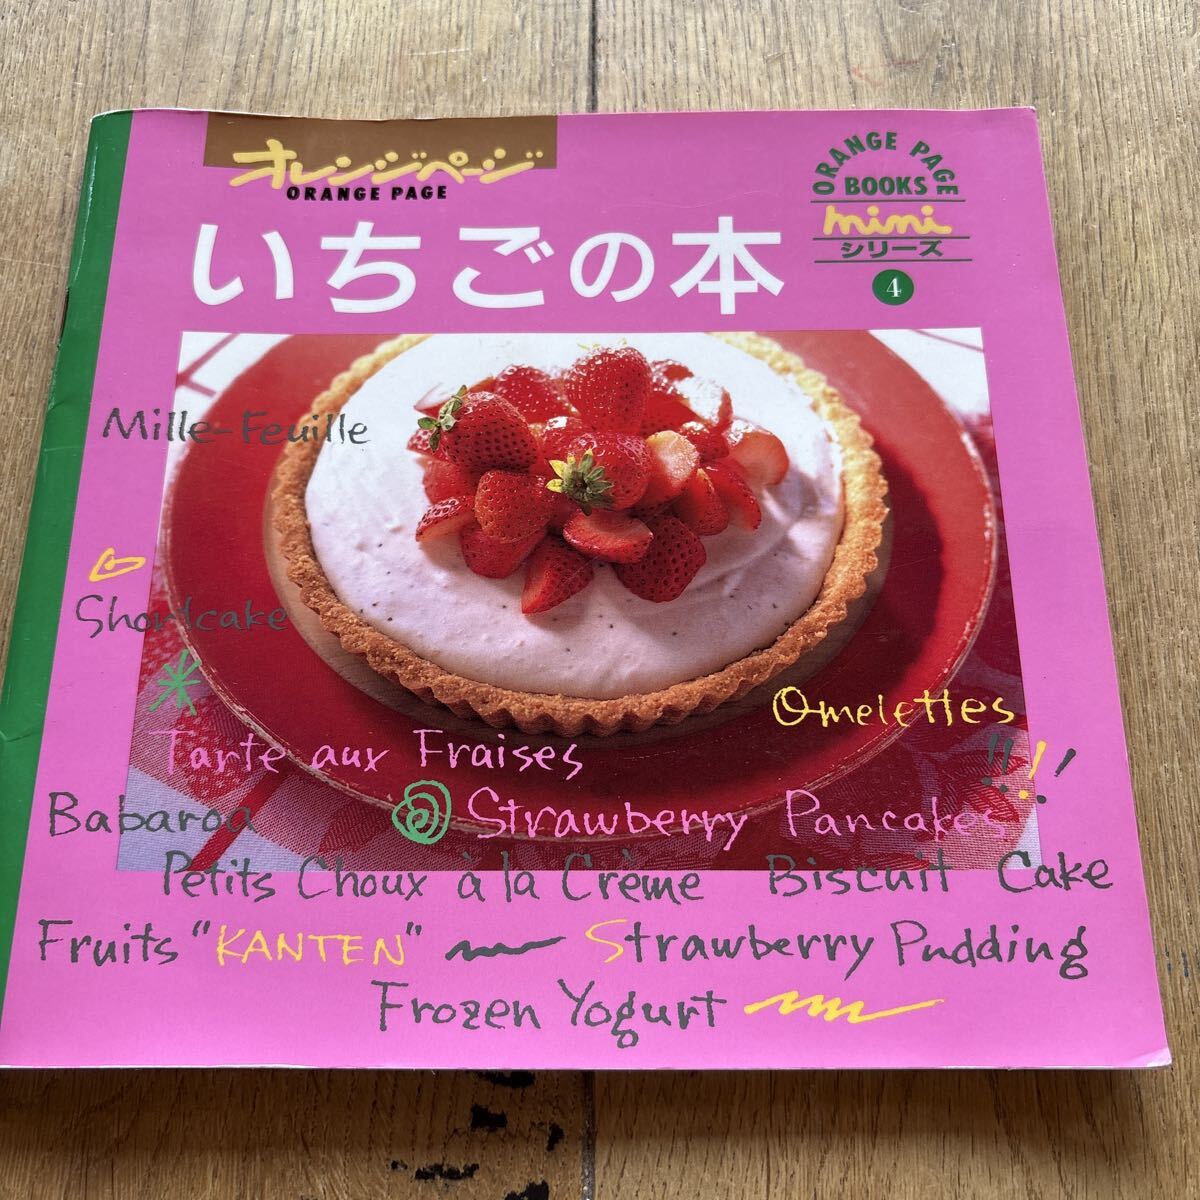 オレンジページ
ORANGE PAGE
いちごの本
ORANGE PAGE
BOOKS
mini
シリーズ
4
Mille-Feuille
Shortcake
Omelettes
!!!!
Tarte aux Fraises
Babaroa
Strawberry Pancakes
Petits Choux à la Crème
Biscuit Cake
Fruits "KANTEN"
Strawberry Pudding
Frozen Yogurt